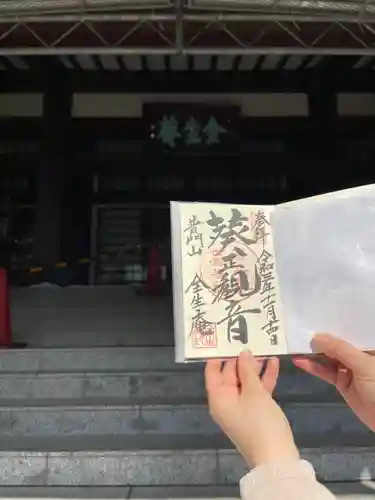 全生庵
奉拝
令和三年十一月十四日
葵正観音
普門山
全生庵